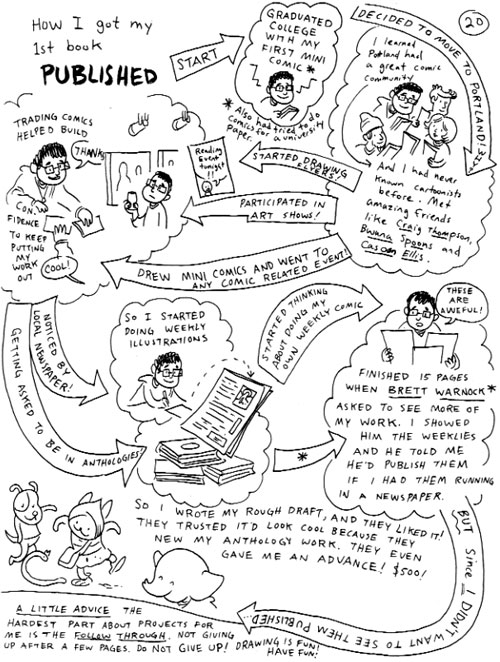 How I got my
1st book
PUBLISHED
START
GRADUATED
COLLEGE
WITH MY
FIRST MINI
COMIC *
* Also had tried to do
comics for a university
paper.
DECIDED TO MOVE TO PORTLAND!
20
I learned
Portland had
a great comic
community
And I had never
known cartoonists
before. Met
amazing friends
like Craig Thompson,
Bwana Spoons and
Casom Ellis.
STARTED DRAWING
FLYERS
Reading
Event
tonight
!!
PARTICIPATED IN
ART SHOWS!
DREW MINI COMICS AND WENT TO
ANY COMIC RELATED EVENT!
TRADING COMICS
HELPED BUILD
THANKS
CON
FIDENCE
TO KEEP
PUTTING
MY
WORK
OUT
COOL!
NOTICED BY
LOCAL NEWSPAPER!
GETTING ASKED TO BE IN ANTHOLOGIES
SO I STARTED
DOING WEEKLY
ILLUSTRATIONS
STARTED THINKING
ABOUT DOING MY
OWN WEEKLY COMIC
*
THESE
ARE
AWEFUL!
FINISHED 15 PAGES
WHEN BRETT WARNOCK*
ASKED TO SEE MORE OF
MY WORK. I SHOWED
HIM THE WEEKLIES
AND HE TOLD ME
HE'D PUBLISH THEM
IF I HAD THEM RUNNING
IN A NEWSPAPER.
BUT Since I DIDN'T WANT TO SEE THEM PUBLISHED
SO I WROTE MY ROUGH DRAFT, AND THEY LIKED IT!
THEY TRUSTED IT'D LOOK COOL BECAUSE THEY
NEW MY ANTHOLOGY WORK. THEY EVEN
GAVE ME AN ADVANCE! $500!
A LITTLE ADVICE THE
HARDEST PART ABOUT PROJECTS FOR
ME IS THE FOLLOW THROUGH. NOT GIVING
UP AFTER A FEW PAGES. DO NOT GIVE UP! DRAWING IS FUN!
HAVE FUN!